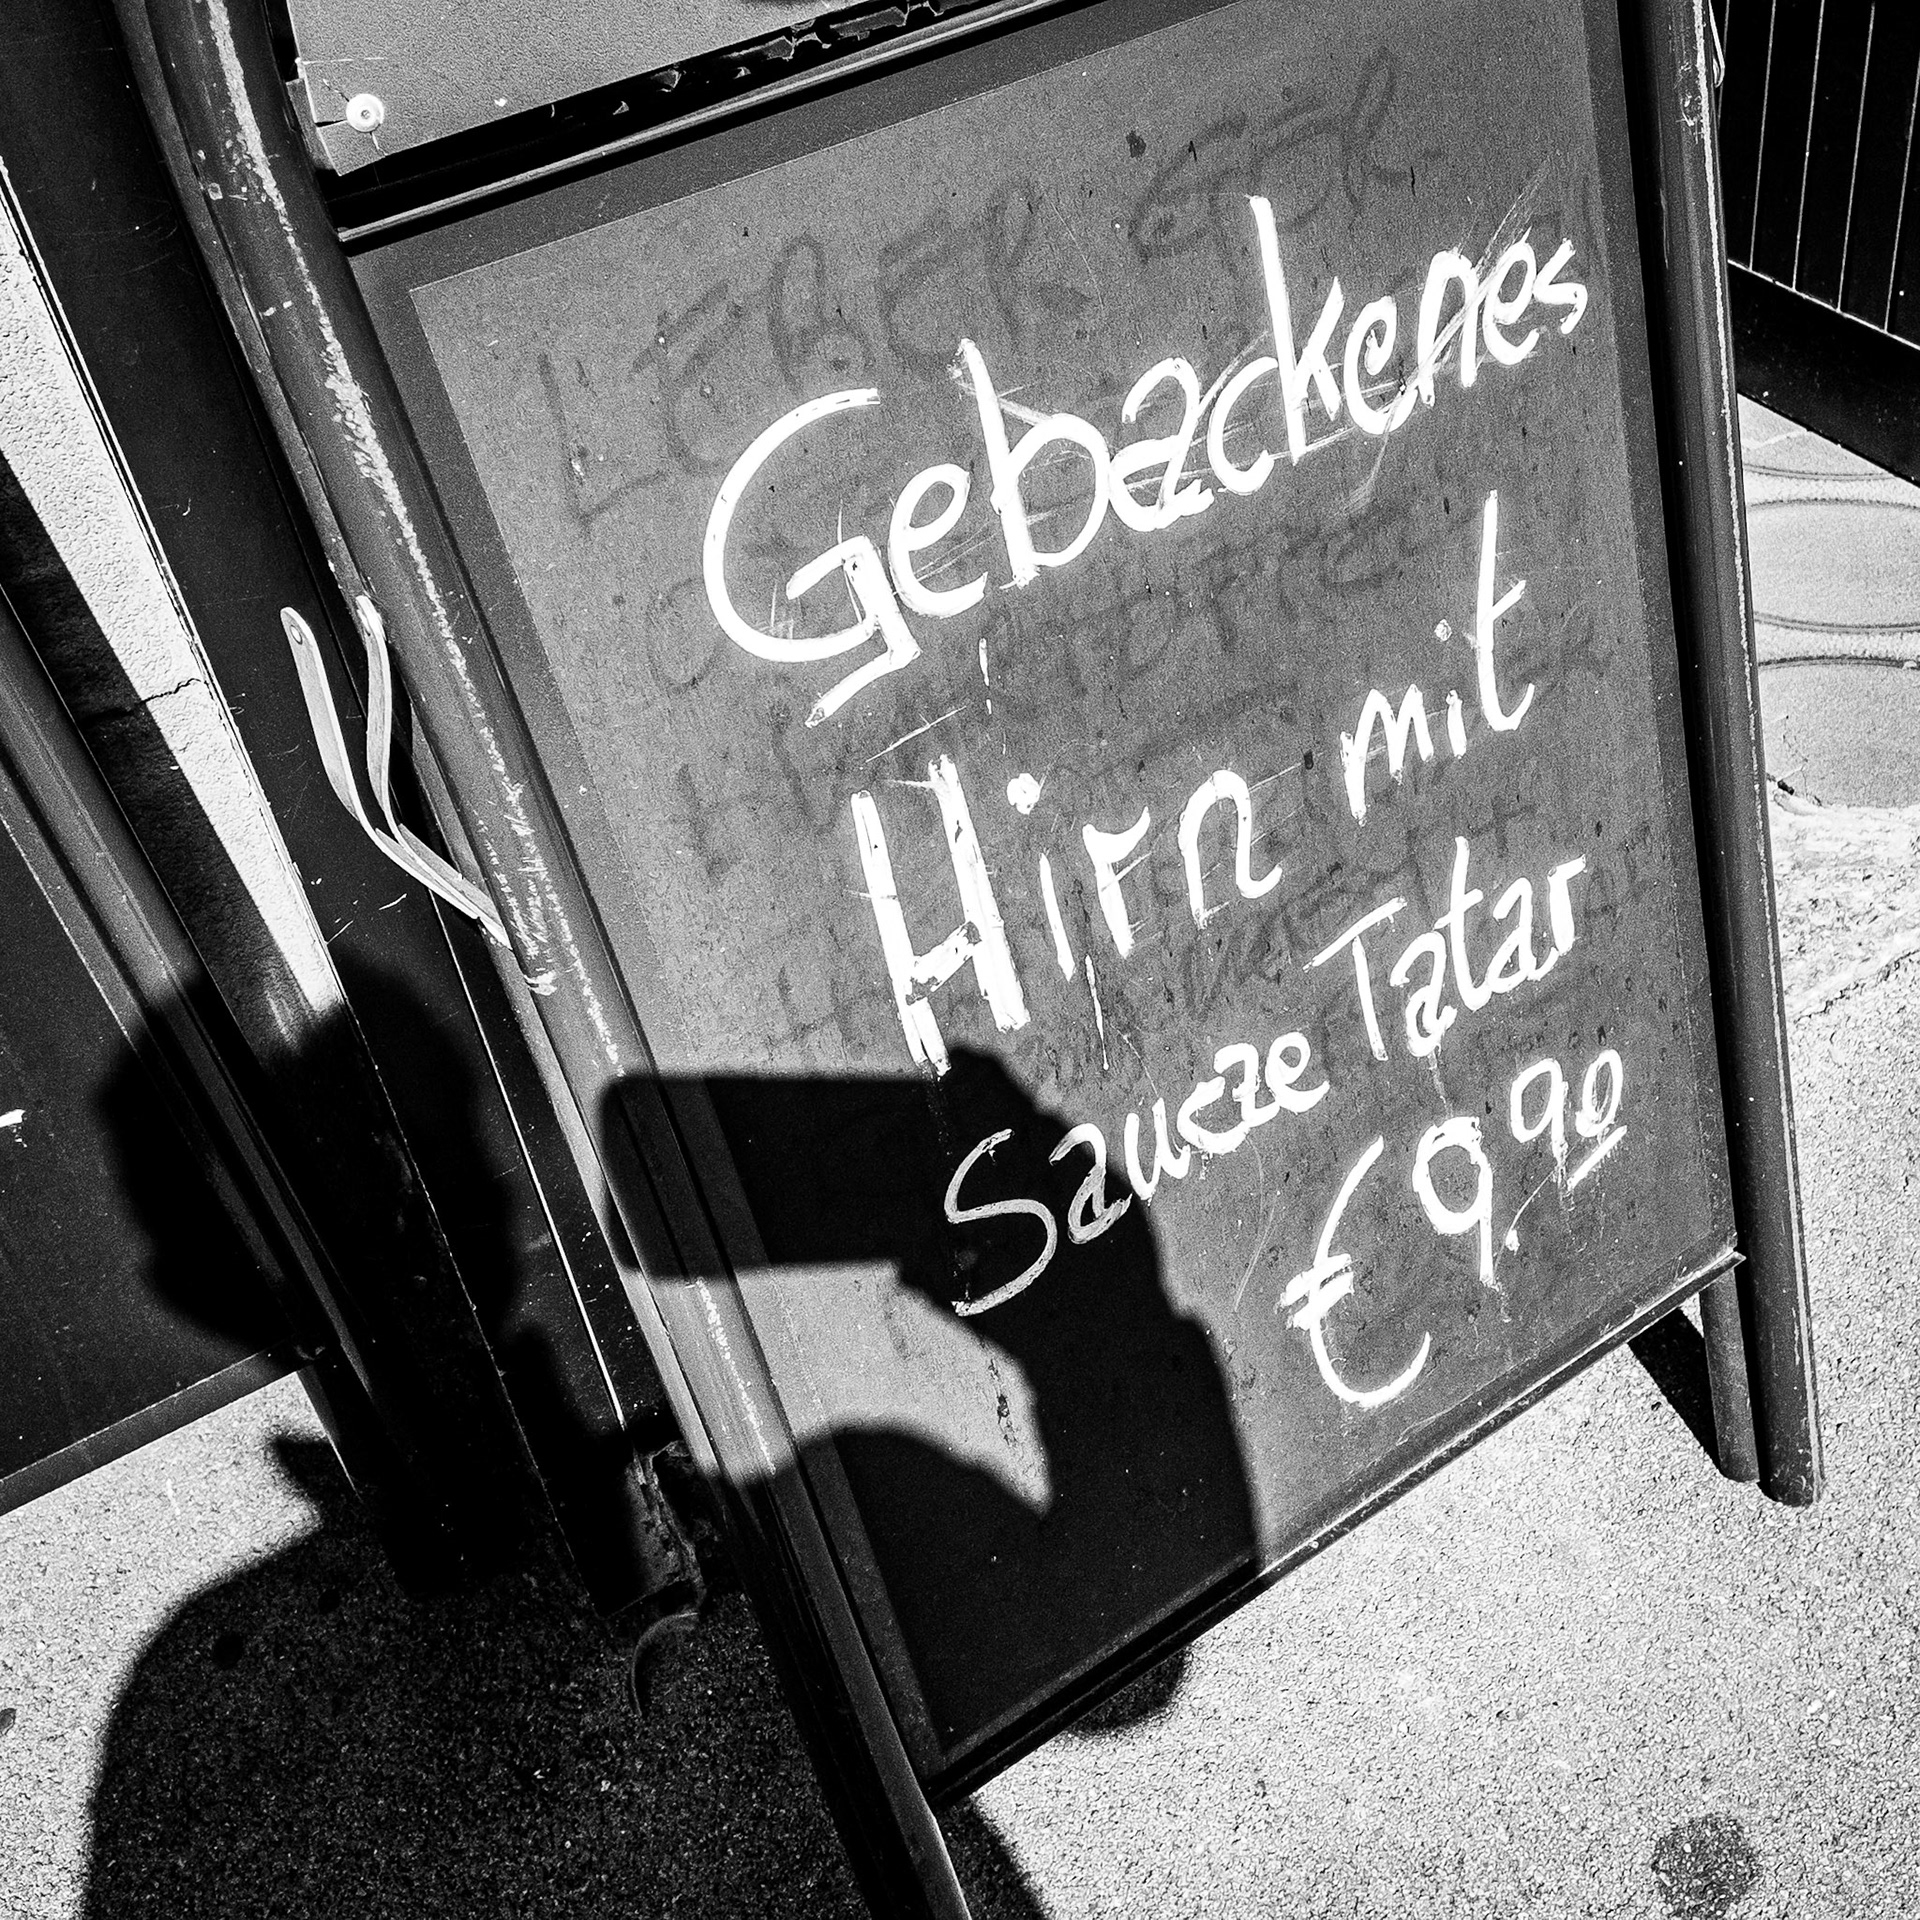 LEBER
Gebackenes
Hirn mit
Saucze Tatar
€ 9.90